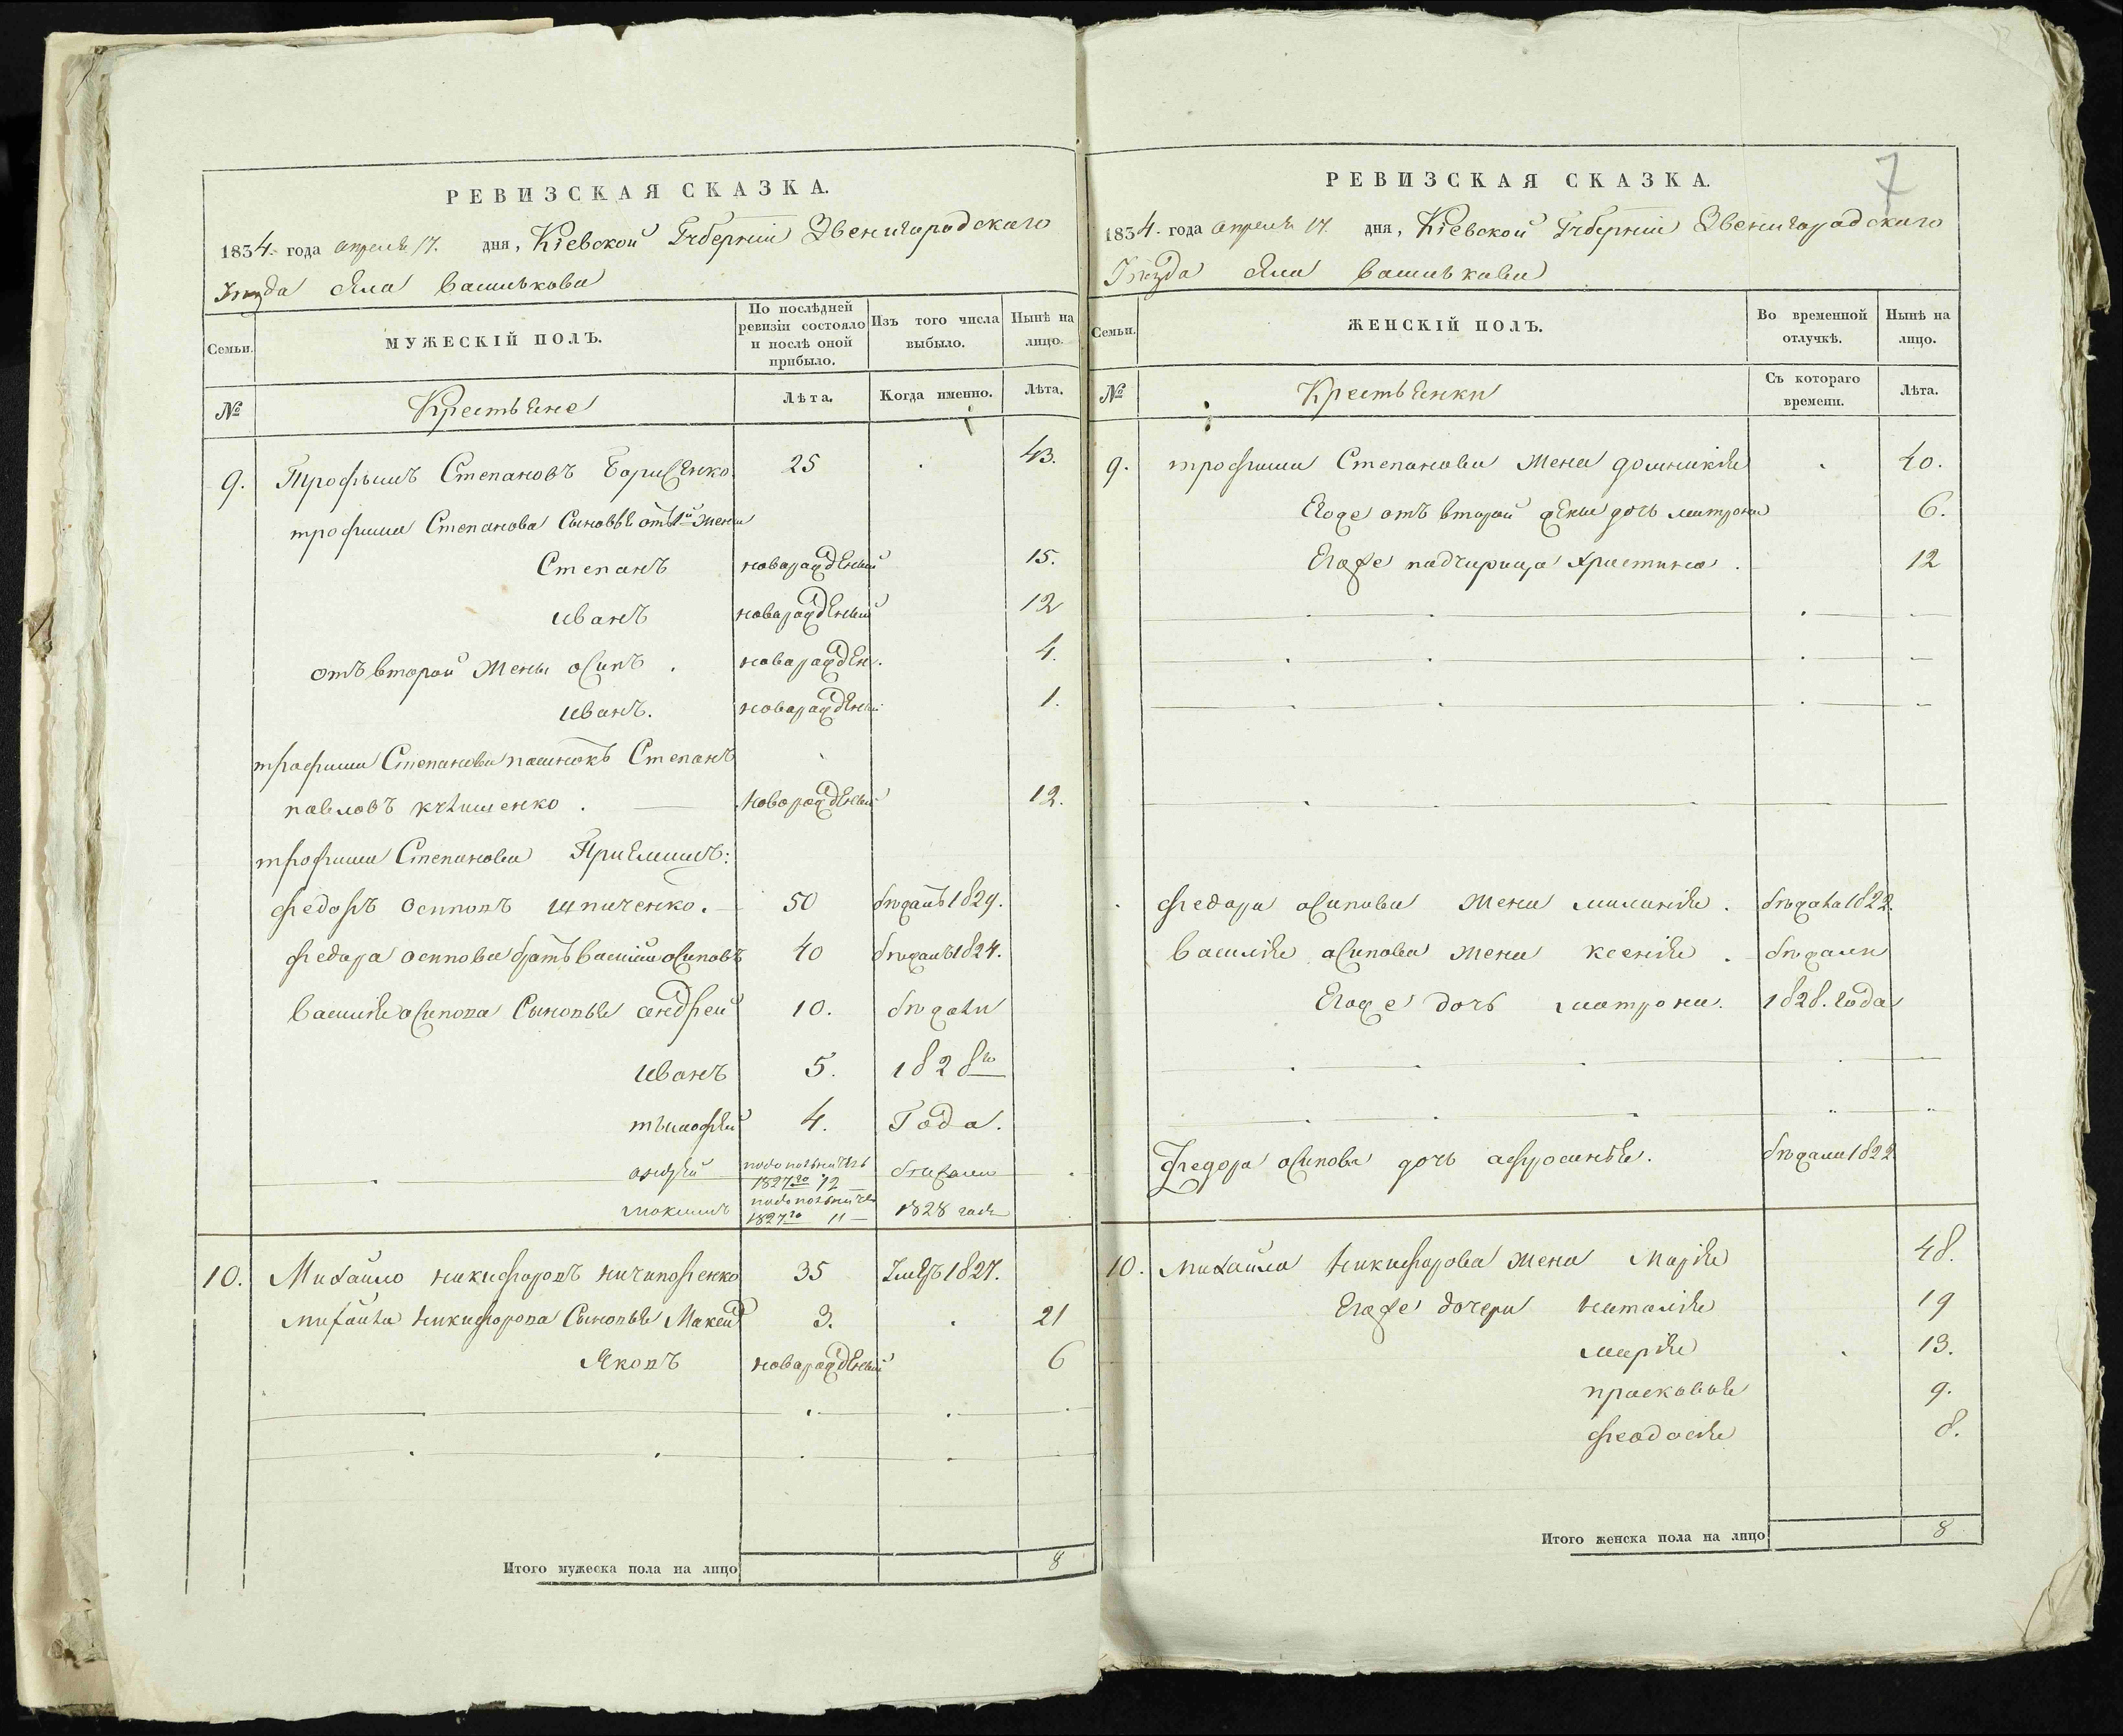 РЕВИЗСКАЯ СКАЗКА.
1834. года апреля 17. дня, Кіевской Губерніи Звенигородского
Уезда Села Василькова
Семьи.
МУЖЕСКІЙ ПОЛЪ.
По послѣдней ревизіи состояло и послѣ оной прибыло.
Изъ того числа выбыло.
Нынѣ на лицо.
№
Крестьяне
Лѣта.
Когда именно.
Лѣта.
9. Трофимъ Степановъ Борисенко 25 43.
трофима Степанова Сыновья отъ 1й жены
Степанъ новарожденый 15.
иванъ новарожденый 12
отъ второй жены осипъ . новарожден. 4.
иванъ. новарожденый 1.
трофима Степанова пасинокъ Степанъ
павловъ . Новорожденый 12.
трофима Степанова Приемишъ:
федоръ осиповъ шпиченко. 50 бѣжалъ 1829.
федора осипова братъ василий осиповъ 40 бѣжалъ 1824.
василия осипова Сыновья андрей 10. бѣжали
иванъ 5. 1828го
тимофей 4. Года.
андрей 1827го 12 бѣжали
максимъ 1827го 11 1828 года
10. Михайло никифоровъ ничипоренко 35 Умеръ 1827.
михайла никифорова Сыновья Макси 3. 21
Яковъ новарожденый 6
Итого мужеска пола на лицо 8
7
РЕВИЗСКАЯ СКАЗКА.
1834. года апреля 17. дня, Кіевской Губерніи Звенигородского
Уезда Села Василькова
Семьи.
ЖЕНСКІЙ ПОЛЪ.
Во временной отлучкѣ.
Нынѣ на лицо.
№
Крестьянки
Съ котораго времени.
Лѣта.
9. трофима Степанова жена домникия 40.
Егоже отъ второй жены дочь матрона 6.
Егоже падчирица христина . 12
федора осипова жена малания . бѣжала 1822.
василия осипова жена ксения . бѣжали
Егоже дочь матрона. 1828. года
федора осипова дочь афросиния. бѣжали 1822
10. михайла никифорова жена Мария 48.
Егоже дочери наталия 19
мария 13.
прасковия 9.
феодосия 8.
Итого женска пола на лицо 8